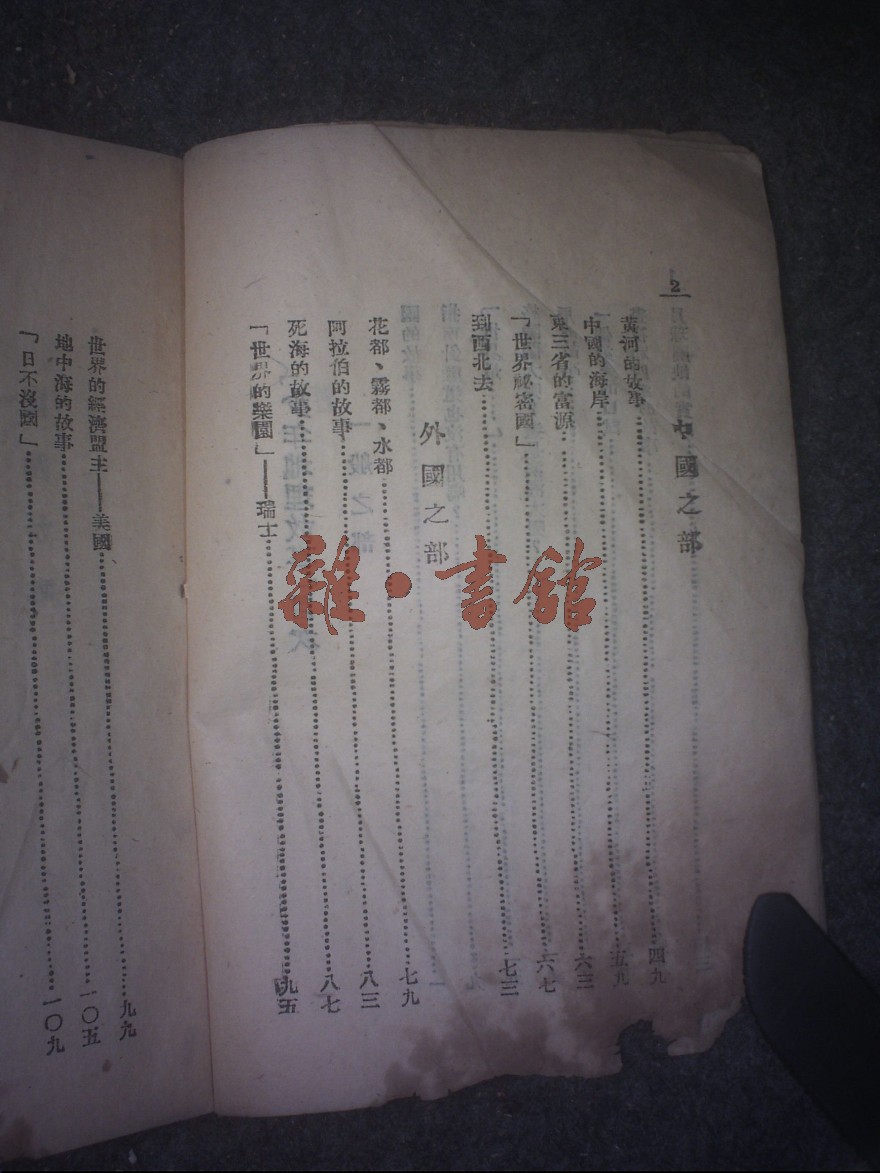 2
中國之部
黃河的故事 四九
中國的海岸 五九
東三省的富源 六三
「世界祕密國」 六七
到西北去 七三
外國之部
花都、霧都、水都 七九
阿拉伯的故事 八三
死海的故事 八七
「世界的樂園」——瑞士 九五
世界的經濟盟主——美國 九九
地中海的故事 一〇五
「日不沒國」 一〇九
雜·書館